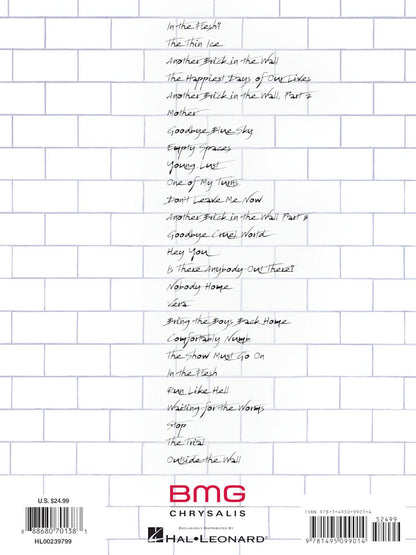 In the Flesh?
The Thin Ice
Another Brick in the Wall
The Happiest Days of Our Lives
Another Brick in the Wall, Part 2
Mother
Goodbye Blue Sky
Empty Spaces
Young Lust
One of My Turns
Don't Leave Me Now
Another Brick in the Wall Part 3
Goodbye Cruel World
Hey You
Is There Anybody Out There?
Nobody Home
Vera
Bring the Boys Back Home
Comfortably Numb
The Show Must Go On
In the Flesh
Run Like Hell
Waiting for the Worms
Stop
The Trial
Outside the Wall
U.S. $24.99
8 88680 70138 5
HL00239799
BMG
CHRYSALIS
EXCLUSIVELY DISTRIBUTED BY
HAL•LEONARD®
ISBN 978-1-4950-9901-4
52499
9 781495 099014